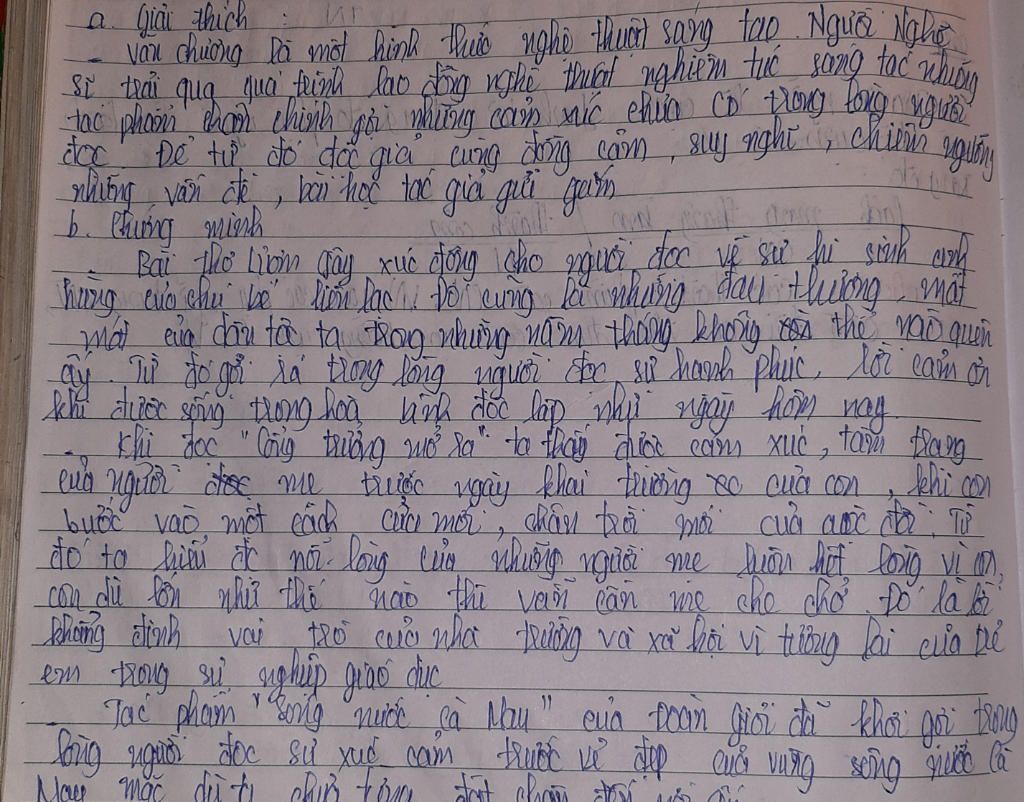 a. Giải thích :
- Văn chương là một hình thức nghệ thuật sáng tạo. Người Nghệ
sĩ trải qua quá trình lao động nghệ thuật nghiêm túc sáng tác những
tác phẩm chân chính gợi những cảm xúc chưa có trong lòng người
đọc. Để từ đó độc giả cùng đồng cảm, suy nghĩ, chiêm ngưỡng
những vấn đề, bài học tác giả gửi gắm
b. Chứng minh
- Bài thơ Lượm gây xúc động cho người đọc về sự hi sinh anh
hùng của chú bé liên lạc. Đó cũng là những đau thương, mất
mát của dân tộc ta trong những năm tháng không thể nào quên
ấy. Từ đó gợi ra trong lòng người đọc sự hạnh phúc, lời cảm ơn
khi được sống trong hoà bình độc lập như ngày hôm nay
- Khi đọc "Cổng trường mở ra" ta thấy được cảm xúc, tâm trạng
của người mẹ trước ngày khai trường của con, khi con
bước vào một cách cửa mới, chân trời mới của cuộc đời. Từ
đó ta hiểu đc nỗi lòng của những người mẹ luôn hết lòng vì con,
con dù lớn như thế nào thì vẫn cần mẹ che chở. Đó là lời
khẳng định vai trò của nhà trường và xã hội vì tương lai của trẻ
em trong sự nghiệp giáo dục
- Tác phẩm "Sông nước Cà Mau" của Đoàn Giỏi đã khơi gợi trong
lòng người đọc sự xúc cảm trước vẻ đẹp của vùng sông nước Cà
Mau mặc dù ta chưa từng đặt chân đến